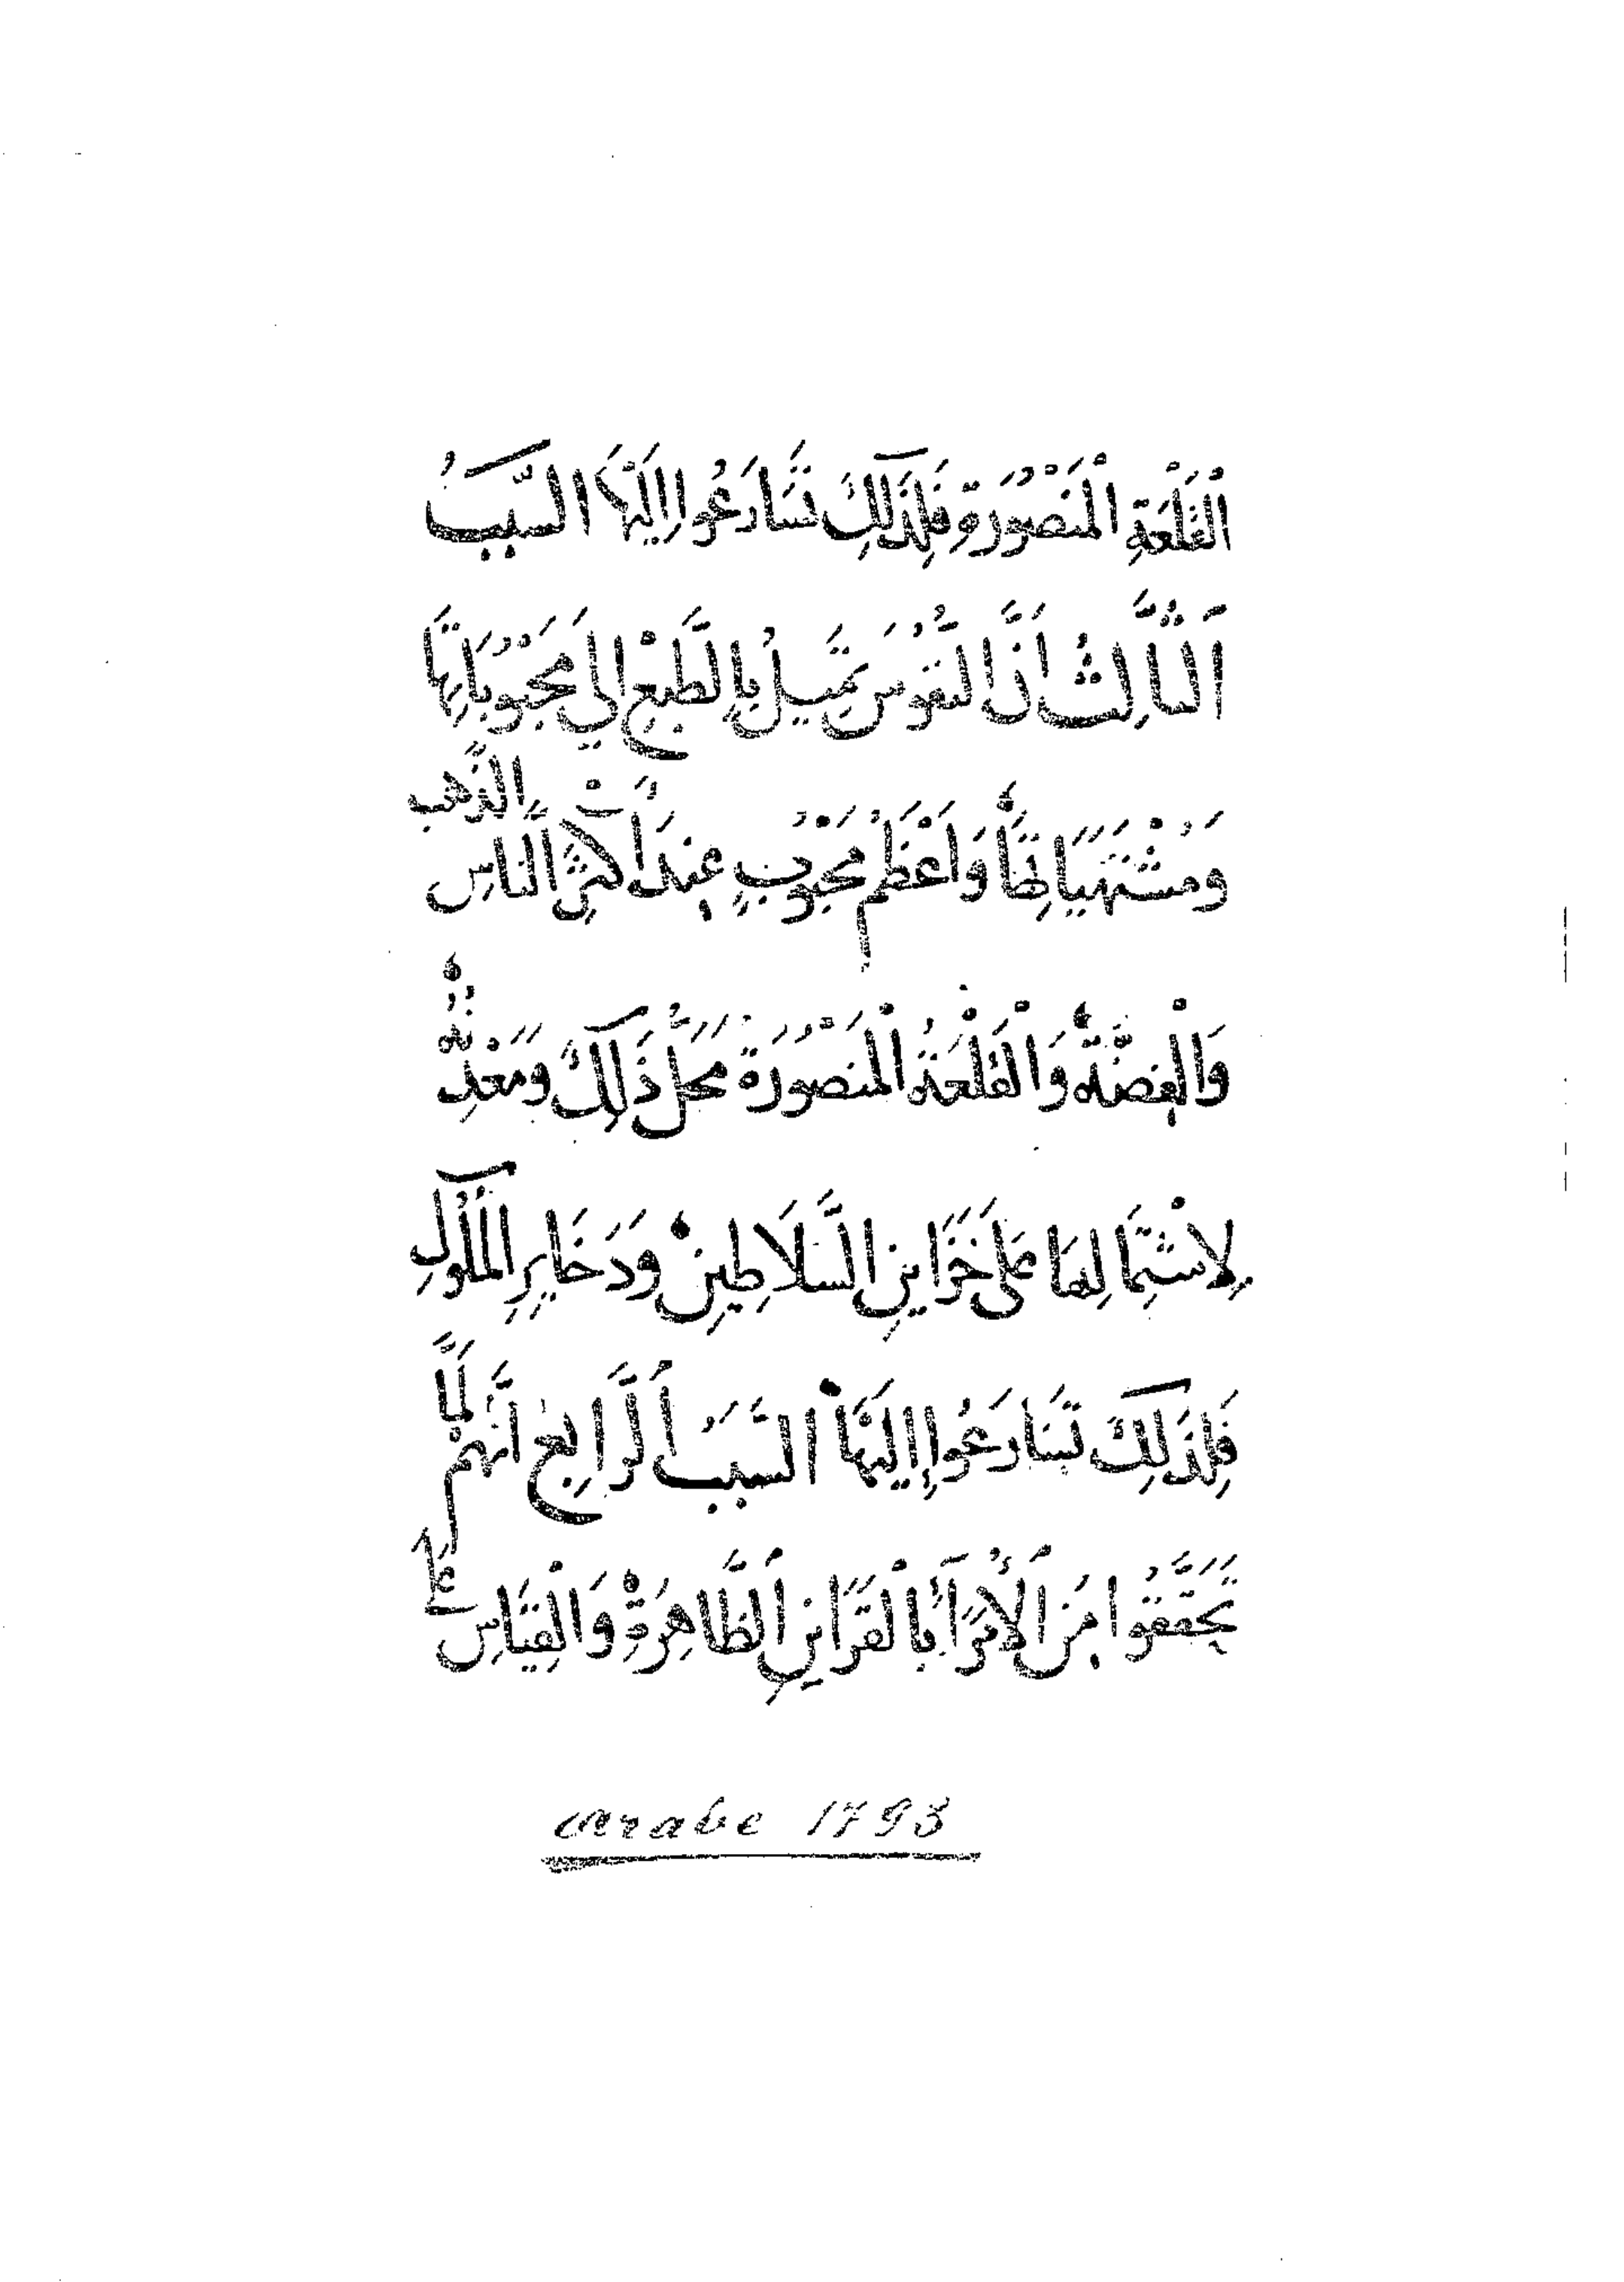 اْلقَلْعَةِ اْلمَنْصُورَةِ فَلِذَلِكَ تَسَارَعُوا اِلَيْهَا السَّبَبُ
اَلثَّالِثُ اَنَّ النُّفُوسَ تَمِيلُ بِالطَّبْعِ اِلَي مَحْبُوبَاتِهَا
وَمُشْتَهَيَاتِهَا وَاَعْظَمُ مَحْبُوبٍ عِنْدَ اَكْثَرِ النَّاسِ الذَّهب
وَاْلفِضَّةُ وَاْلقَلْعَةُ اْلمَنْصُورَةُ مَحَلُّ ذَلِكَ وَمَعْدِنُهُ
لِاشْتِمَالِهَا عَلَى خَزَايِنِ السَّلَاطِينِ وَدَخَايِرِ اْلمُلُوكِ
فَلِذَلِكَ تَسَارَعُوا اِلَيْهَا السَّبَبُ اَلرَّابِعُ اَنَّهُمْ لَمَّا
تَحَقَّقُوا مِنَ اَلْأُمَرَآءِ بِاْلقَرَايِنِ اَلظَّاهِرَةِ وَاْلقِيَاسِ عَلَى
Arabe 1793